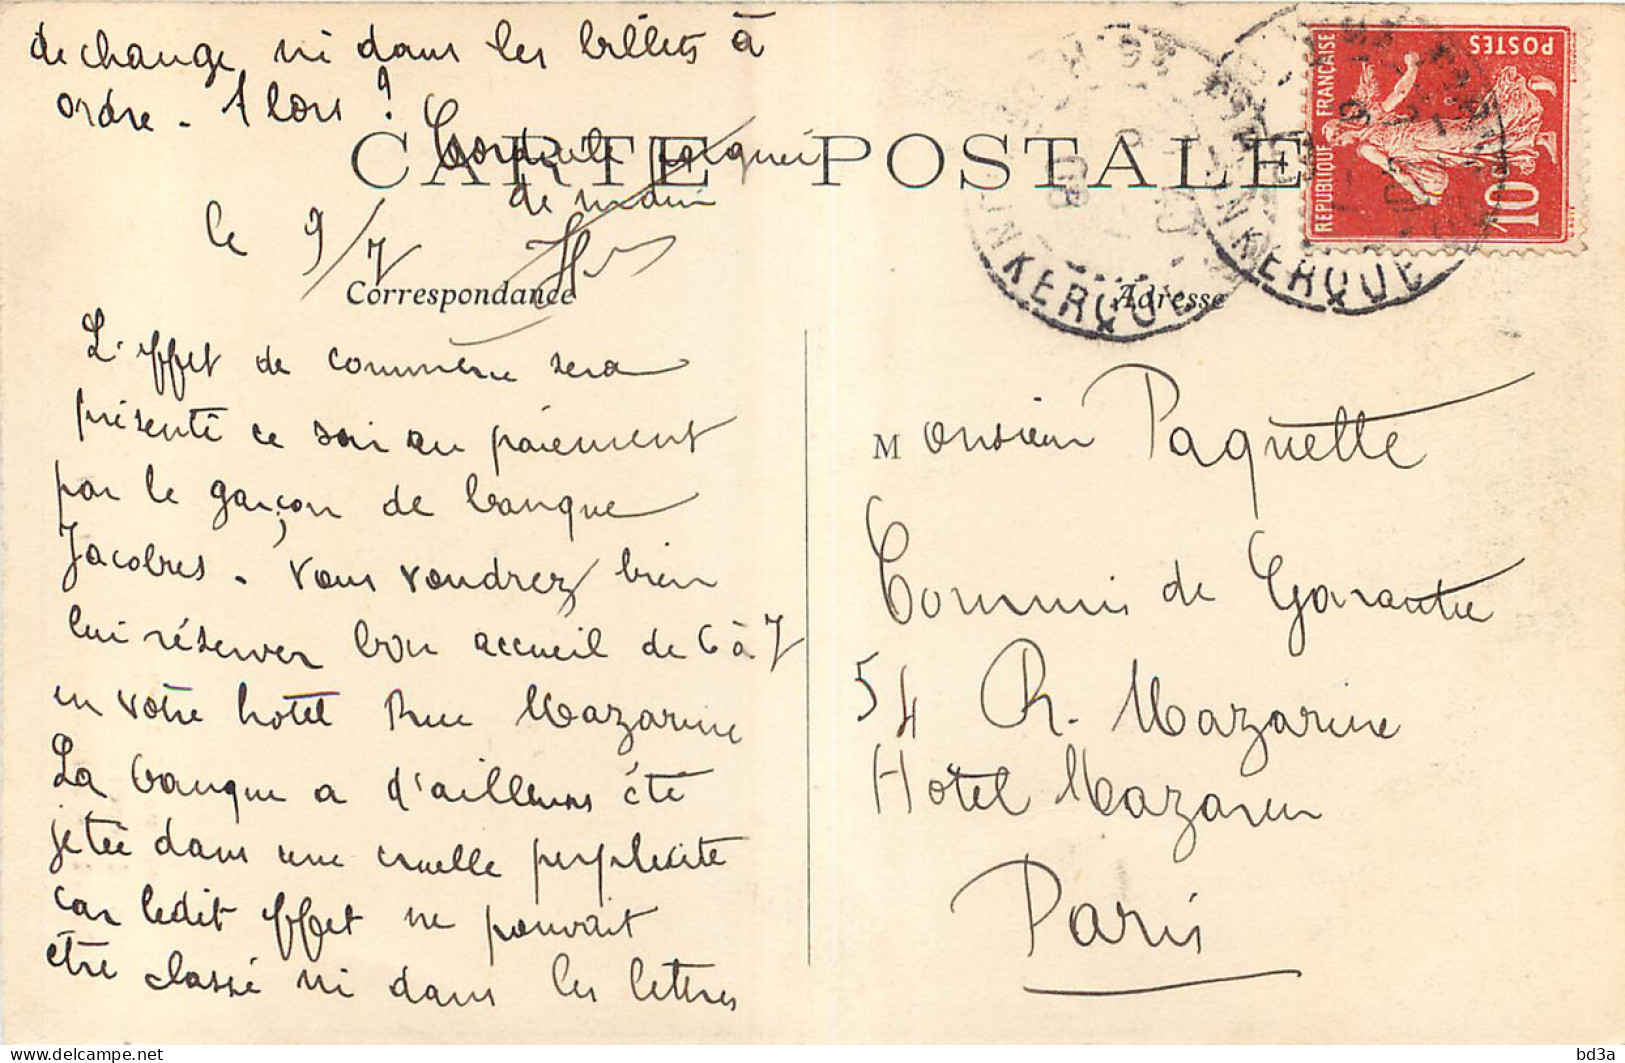 de change, ni dans les billets à
ordre. Alors ?
CARTE POSTALE
Cordiale poignée
de main
le 9/7
Correspondance
L'effet de commerce sera
présenté ce soir au paiement
par le garçon de banque
Jacobres. Vous voudrez bien
lui réserver bon accueil de 6 à 7
en votre hotel Rue Mazarine
La banque a d'ailleurs été
jetée dans une cruelle perplexité
car ledit effet ne pouvait
être classé ni dans les lettres
Adresse
Monsieur Paquette
Commis de Garantie
54 R. Mazarine
Hôtel Mazarin
Paris
REPUBLIQUE FRANÇAISE
POSTES
10c
DUNKERQUE
DUNKERQUE
08
bd3a